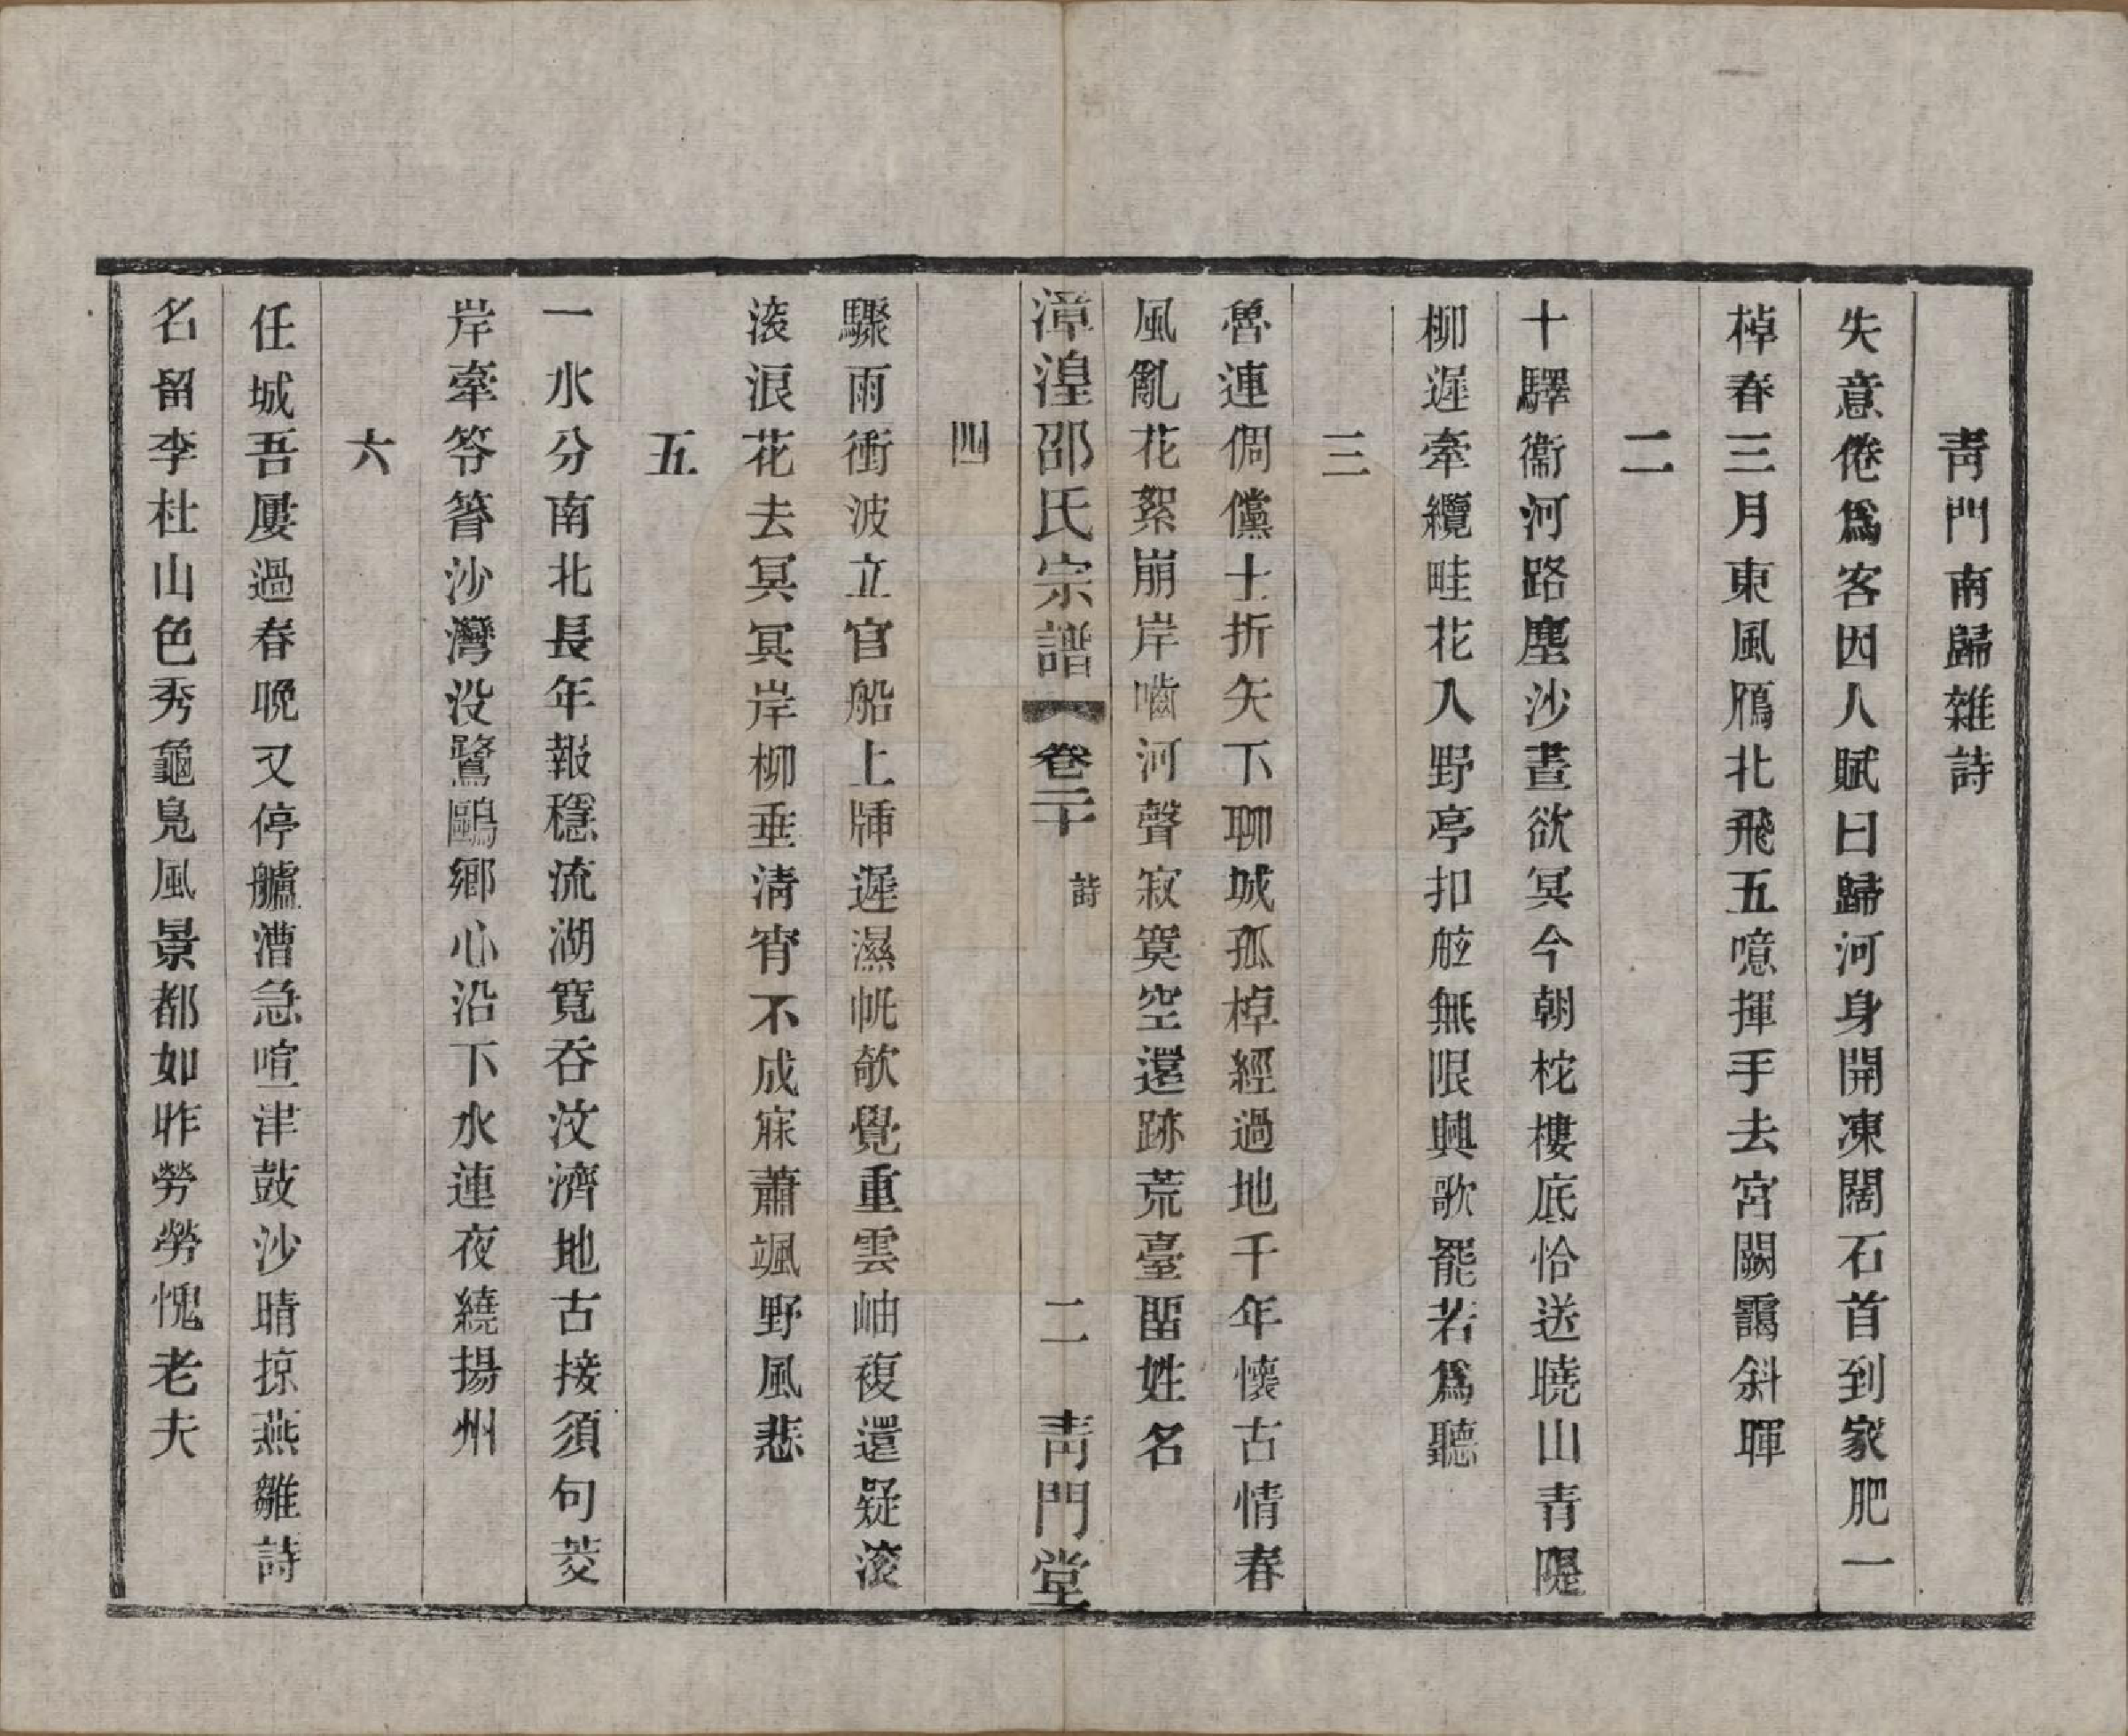 靑門南歸雜詩
失意倦爲客因人賦曰歸河身開凍闊石首到家肥一
棹春三月東風鴈北飛五噫揮手去宮闕靄斜暉
二
十驛衞河路塵沙晝欲冥今朝柁樓底恰送曉山青隄
柳遲牽纜畦花入野亭扣舷無限興歌罷若爲聽
三
魯連倜儻士折矢下聊城孤棹經過地千年懷古情春
風亂花絮崩岸嚙河聲寂寞空還跡荒臺留姓名
漳湟邵氏宗譜 卷二十 詩 二 靑門堂
四
驟雨衝波立官船上牐遲濕帆欹覺重雲岫複還疑滚
滚浪花去冥冥岸柳垂淸宵不成寐蕭颯野風悲
五
一水分南北長年報穩流湖寬呑汶濟地古接須句菱
岸牽笭箵沙灣没鷺鷗鄉心沿下水連夜繞揚州
六
任城吾屢過春晩又停艫漕急喧津鼓沙晴掠燕雛詩
名留李杜山色秀龜鳧風景都如昨勞勞愧老夫